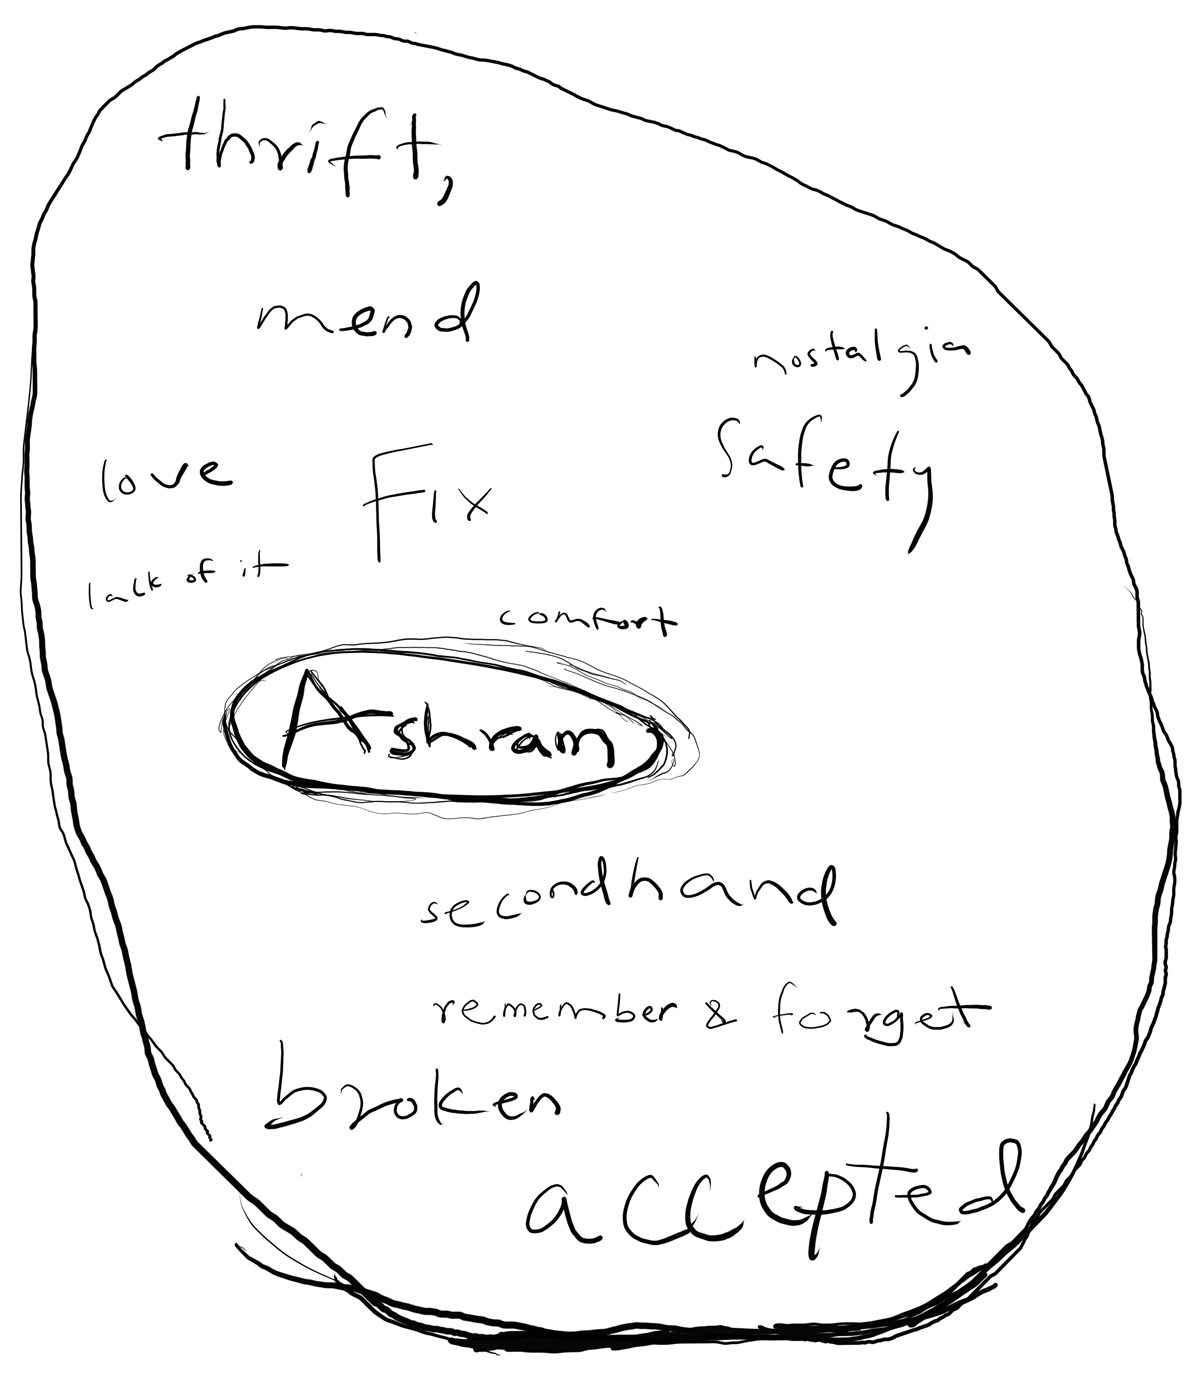 thrift,
mend
nostalgia
safety
love
Fix
lack of it
comfort
Ashram
secondhand
remember & forget
broken
accepted